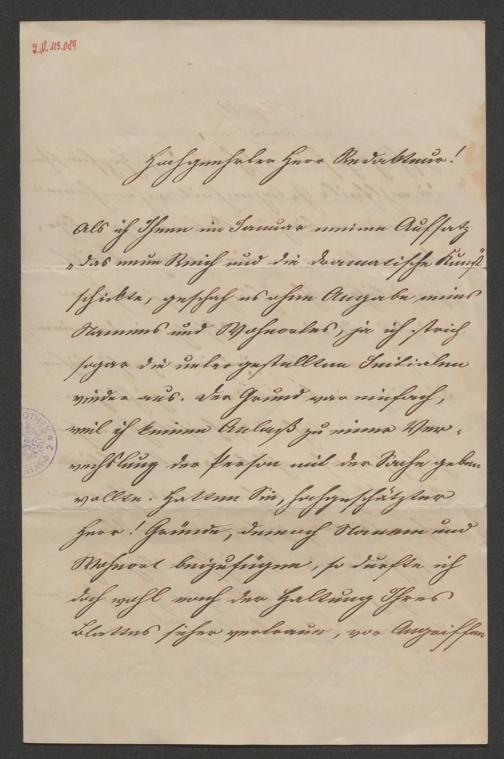 I.N. 113.089
Hochgeehrter Herr Redakteur!
Als ich Ihnen im Januar meinen Aufsatz
„das neue Reich und die dramatische Kunst“
schickte, geschah es ohne Angabe meines
Namens und Wohnortes, ja ich strich
sogar die untergestellten Initialen
wieder aus. Der Grund war einfach,
weil ich keinen Anlaß zu einer Ver-
wechslung der Person mit der Sache geben
wollte. Hatten Sie, hochgeschätzter
Herr! Gründe, dennoch Namen und
Wohnort beizufügen, so durfte ich
doch wohl nach der Haltung Ihres
Blattes sicher vertrauen, vor Angriffen